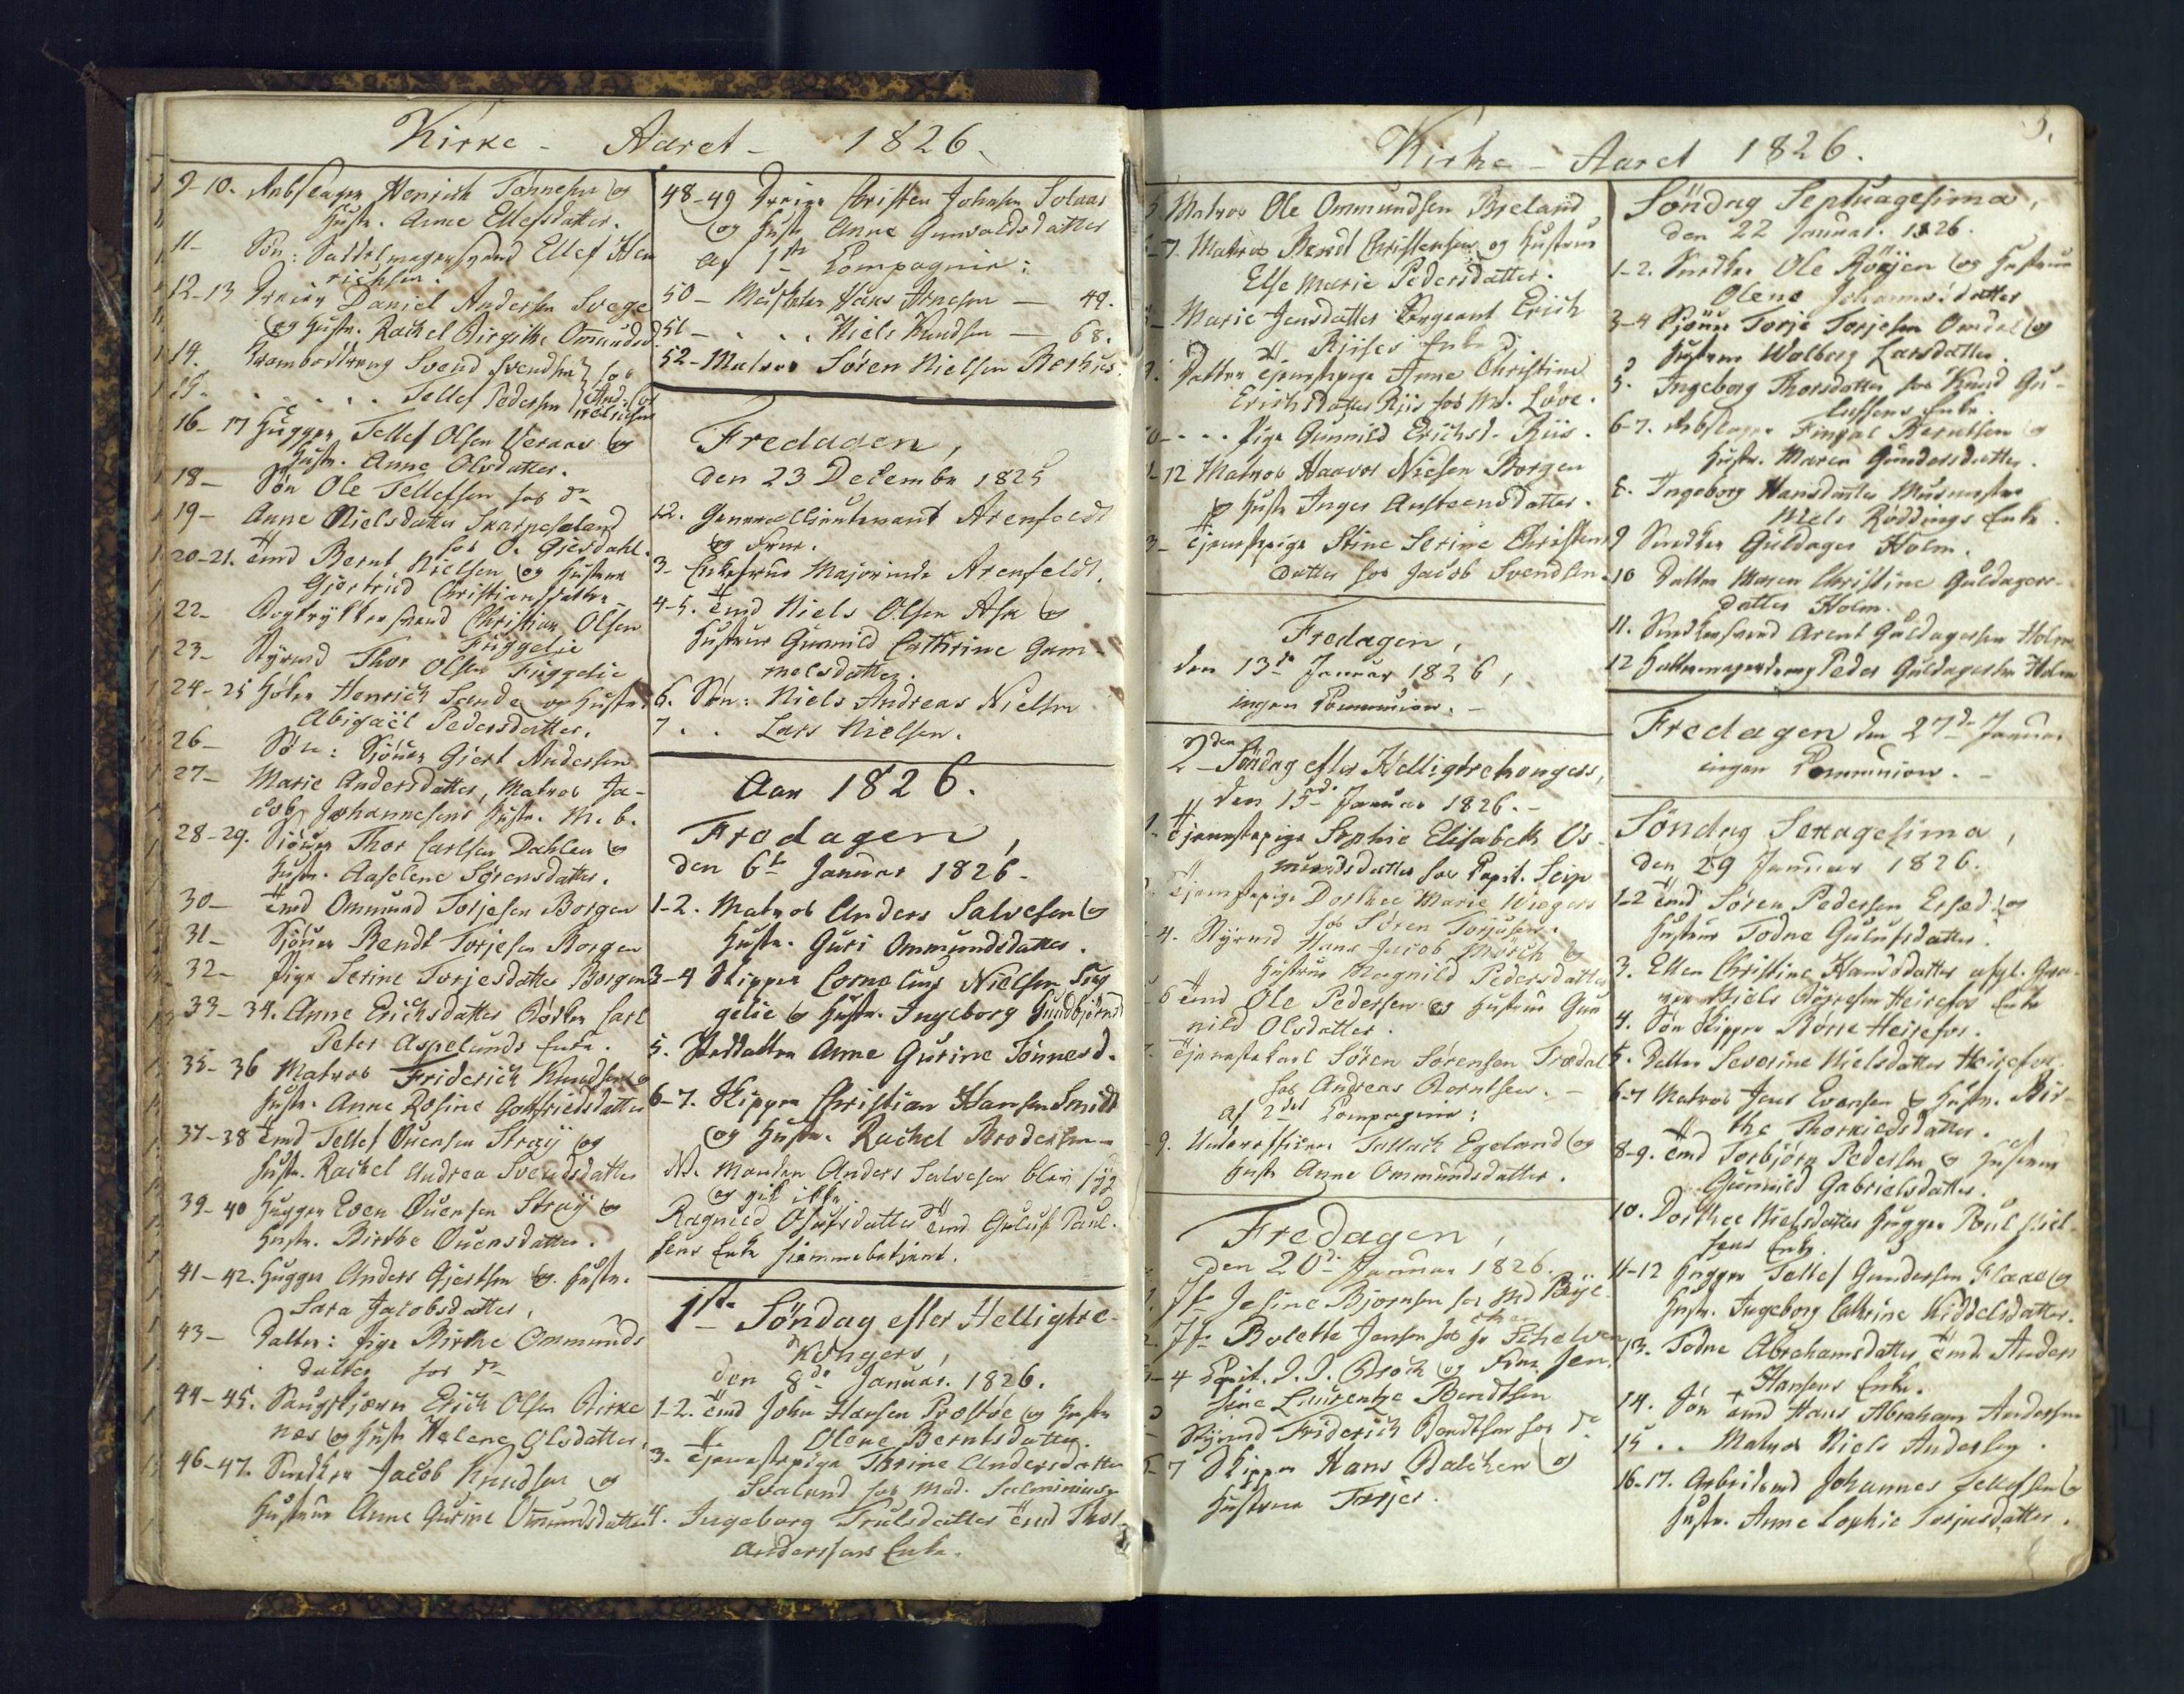 Kirke - Aaret - 1826.
9-10. Rebslager Henrich Tønnesen og
Hustr. Anne Ellefsdatter.
11- Søn: Sadelmagersvend Ellef Hen
richsen.
12-13 Dreier Daniel Andersen Svege
og Hustr. Rachel Birgithe Omundsd.
14. Svend Svendsen hos
15. . . . . . Tellef Pedersen
16-17 Hugger Tellef Olsen Veraas og
Hustr. Anne Olsdatter.
18- Søn Ole Tellefsen hos do
19- Anne Nielsdatter Skarpeland
hos O. Giesdahl.
20-21. Tmd Bernt Nielsen og Hustrue
Giørtrud Christiansdatter
22- Bogtrykkersvend Christian Olsen
Friggelie
23- Styrmd Thor Olsen Friggelie
24-25 Høker Henrich Sande og Hustr.
Abigaël Pedersdatter.
26- Søn: Sjöuer Giert Andersen
27- Marie Andersdatter, Matros Ja-
cob Johannesens Hustr. M. b.
28-29. Sjöuer Thor Carlsen Dahlen og
Hustr. Aaselene Sørensdatter.
30- Tmd Ommund Torjesen Borgen
31- Sjöuer Bendt Torjesen Borgen
32- Pige Serine Torjesdatter Borgen
33-34. Anne Erichsdatter Bødker Carl
Peter Aspelunds Enke.
35-36 Matros Friderich Knudsen og
Hustr. Anne Rosine Gottfriedsdatter
37-38 Tmd Tellef Ouensen Straÿ og
Hustr. Rachel Andrea Svendsdatter
39-40 Hugger Even Ouensen Straÿ og
Hustr. Birthe Ouensdatter.
41-42. Hugger Anders Gjertsen og Hustr.
Sara Jacobsdatter,
43- Datter: Pige Birthe Ommunds
datter hos do
44-45. Erich Olsen Birke
næs og Hustr Helene Olsdatter.
46-47. Snedker Jacob Knudsen og
Hustrue Anne Gurine Omundsdatter
48-49 Dreier Christen Johnsen Solaas
og Hustr Anne Gunvaldsdatter
af 1ste Compagnie:
50- Musketer Hans Arnesen - 49.
51- . . . Niels Knudsen - 68.
52- Matros Søren Nielsen Berhus.
Fredagen,
den 23 December 1825
1-2. Generallieutenant Arenfeldt
og Frue.
3- Enkefrue Majorinde Arenfeldt.
4-5. Tmd Niels Olsen Ask og
Hustrue Gunnild Cathrine Gam-
melsdatter.
6. Søn: Niels Andreas Nielsen
7 . . Lars Nielsen.
Aar 1826.
Fredagen,
den 6te Januar 1826.
1-2. Matros Anders Salvesen og
Hustr. Guri Ommundsdatter.
3-4 Skipper Cornelius Nielsen Frig
gelie og Hustr. Ingeborg Gundbjørnsd
5. Steddatter Anne Gurine Tønnesd.
6-7. Skipper Christian Hansen Smidt
og Hustr. Rachel Brodersen
NB. Manden Anders Salvesen blev syg
og gik ikke.
Ragnild Olufsdatter Tmd Guluf Paul-
sens Enke hjemmebetjent.
1ste Söndag efter Helligtre-
kongers,
den 8de Januar. 1826.
1-2. Tmd John Hansen Prostøe og Hustr
Olene Berntsdatter.
3. Tjenestepige Thrine Andersdatter
Svaland hos Mad. Salminius
4. Ingeborg Trulsdatter Tmd Thor
Andersens Enke.
Kirke - Aaret 1826.
5.
5 Matros Ole Ommundsen Bieland
6-7. Matros Bendt Christensen og Hustrue
Else Marie Pedersdatter.
8- Marie Jensdatter Sergeant Erich
Riises Enke
9. Datter Tjenestepige Anne Christine
Erichsdatter Riis hos Mr. Løve.
10- . . Pige Gunnild Erichsd. Riis.
11-12 Matros Haavor Nielsen Borgen
og Hustr Inger Austeensdatter.
13- Tjenestepige Stine Serine Christens
datter hos Jacob Svendsen.
Fredagen,
den 13de Januar 1826,
ingen Communion. -
2den Söndag efter Helligtrekongers,
den 15de Januar 1826. -
1. Tjenestepige Sophie Elisabeth Os-
mundsdatter hos Capit. Seip
Tjenestepige Dorthee Marie Wiegers
hos Søren Torjusen.
-4. Styrmd Hans Jacob Mörch og
Hustrue Magnild Pedersdatter
-6 Tmd Ole Pedersen og Hustrue Gun
nild Olsdatter.
7. Tjenestekarl Søren Sørensen Frædal
hos Andreas Berntsen. -
af 2det Compagnie:
-9. Underofficeer Tallach Egeland og
Hustr Anne Ommundsdatter.
Fredagen,
den 20de Januar 1826.
1. Jfr Jesine Bjørnsen
2. Jfr Bolette Jensen hos
3-4 Capit. D. I. Broch og Frue Jen
sine Laurentze Bendtsen
Styrmd Friderich Bendtsen hos do
6-7 Skipper Hans Balchen og
Hustrue Torjer.
Söndag Septuagesima,
den 22 Januar. 1826.
1-2. Snedker Ole Røyjen og Hustrue
Olene Johannesdatter
3-4 Sjöuer Torje Torjesen Omdal og
Hustrue Wolberg Larsdatter.
5. Ingeborg Thorsdatter hos Knud Gu-
lufsens Enke.
6-7. Rebslager Fingal Berntsen og
Hustr. Maren Gundersdatter.
8. Ingeborg Hansdatter Murmester
Niels Røddings Enke.
9 Snedker Guldager Holm.
10 Datter Maren Christine Guldagers-
datter Holm.
11. Snedkersvend Arent Guldagersen Holm
12 Hattemagerdreng Peder Guldagersen Holm
Fredagen den 27de Januar
ingen Communion. -
Söndag Sexagesima,
den 29 Januar 1826.
1-2 Tmd Søren Pedersen Ersæd og
Hustrue Todne Gulufsdatter.
3. Ellen Christine Hansdatter afgl.
Niels Børresen Heirefos Enke
4. Søn Skipper Børre Heirefos.
5. Datter Severine Nielsdatter Heirefos
6-7 Matros Jens Evensen og Hustr. Bir-
the Thorkieldsdatter.
8-9. Tmd Torbjørn Pedersen og Hustrue
Gunnild Gabrielsdatter.
10. Dorthee Nielsdatter Hugger Poul Niel-
sens Enke.
11-12 Hugger Tellef Gundersen Flaae og
Hustr. Ingeborg Cathrine Kiddelsdatter.
13. Todne Abrahamsdatter Tmd Anders
Hansens Enke.
14. Søn Tmd Hans Abraham Andersen
15 . . Matros Niels Andersen.
16-17. Arbeidsmd Johannes Tellefsen og
Hustr. Anne Sophie Torjusdatter.